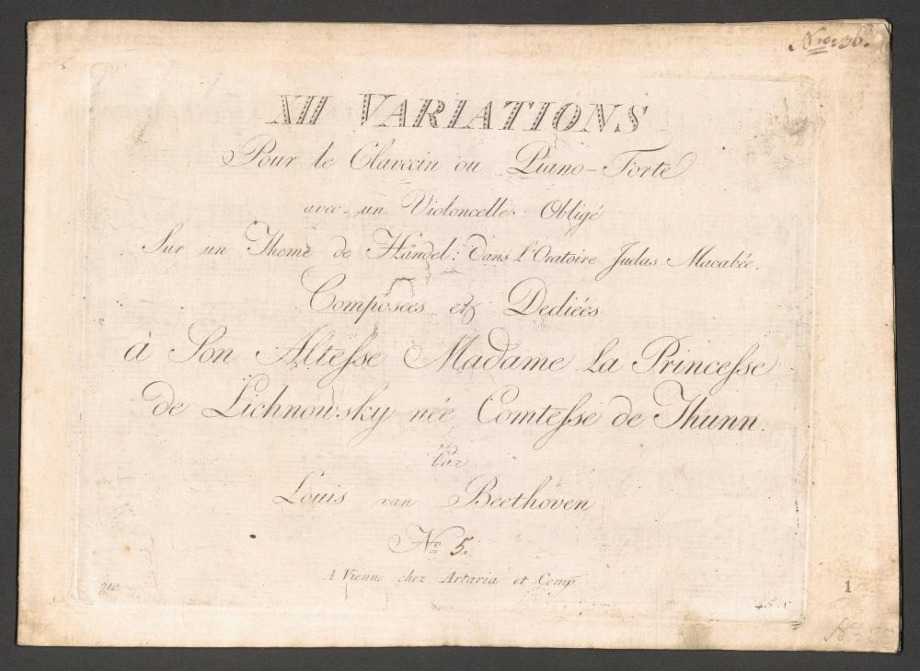 Nro: 36.
XII VARIATIONS
Pour le Clavecin ou Piano-Forte
avec un Violoncelle Obligé
Sur un Theme de Händel: dans L'Oratoire Judas Macabée.
Composées et Dediées
à Son Altesse Madame La Princesse
de Lichnowsky née Comtesse de Thunn.
Par
Louis van Beethoven
No 5.
A Vienne chez Artaria et Comp.
710.
1